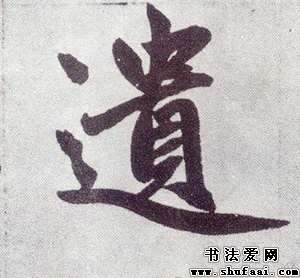 遺
书法爱网
www.shufaai.com